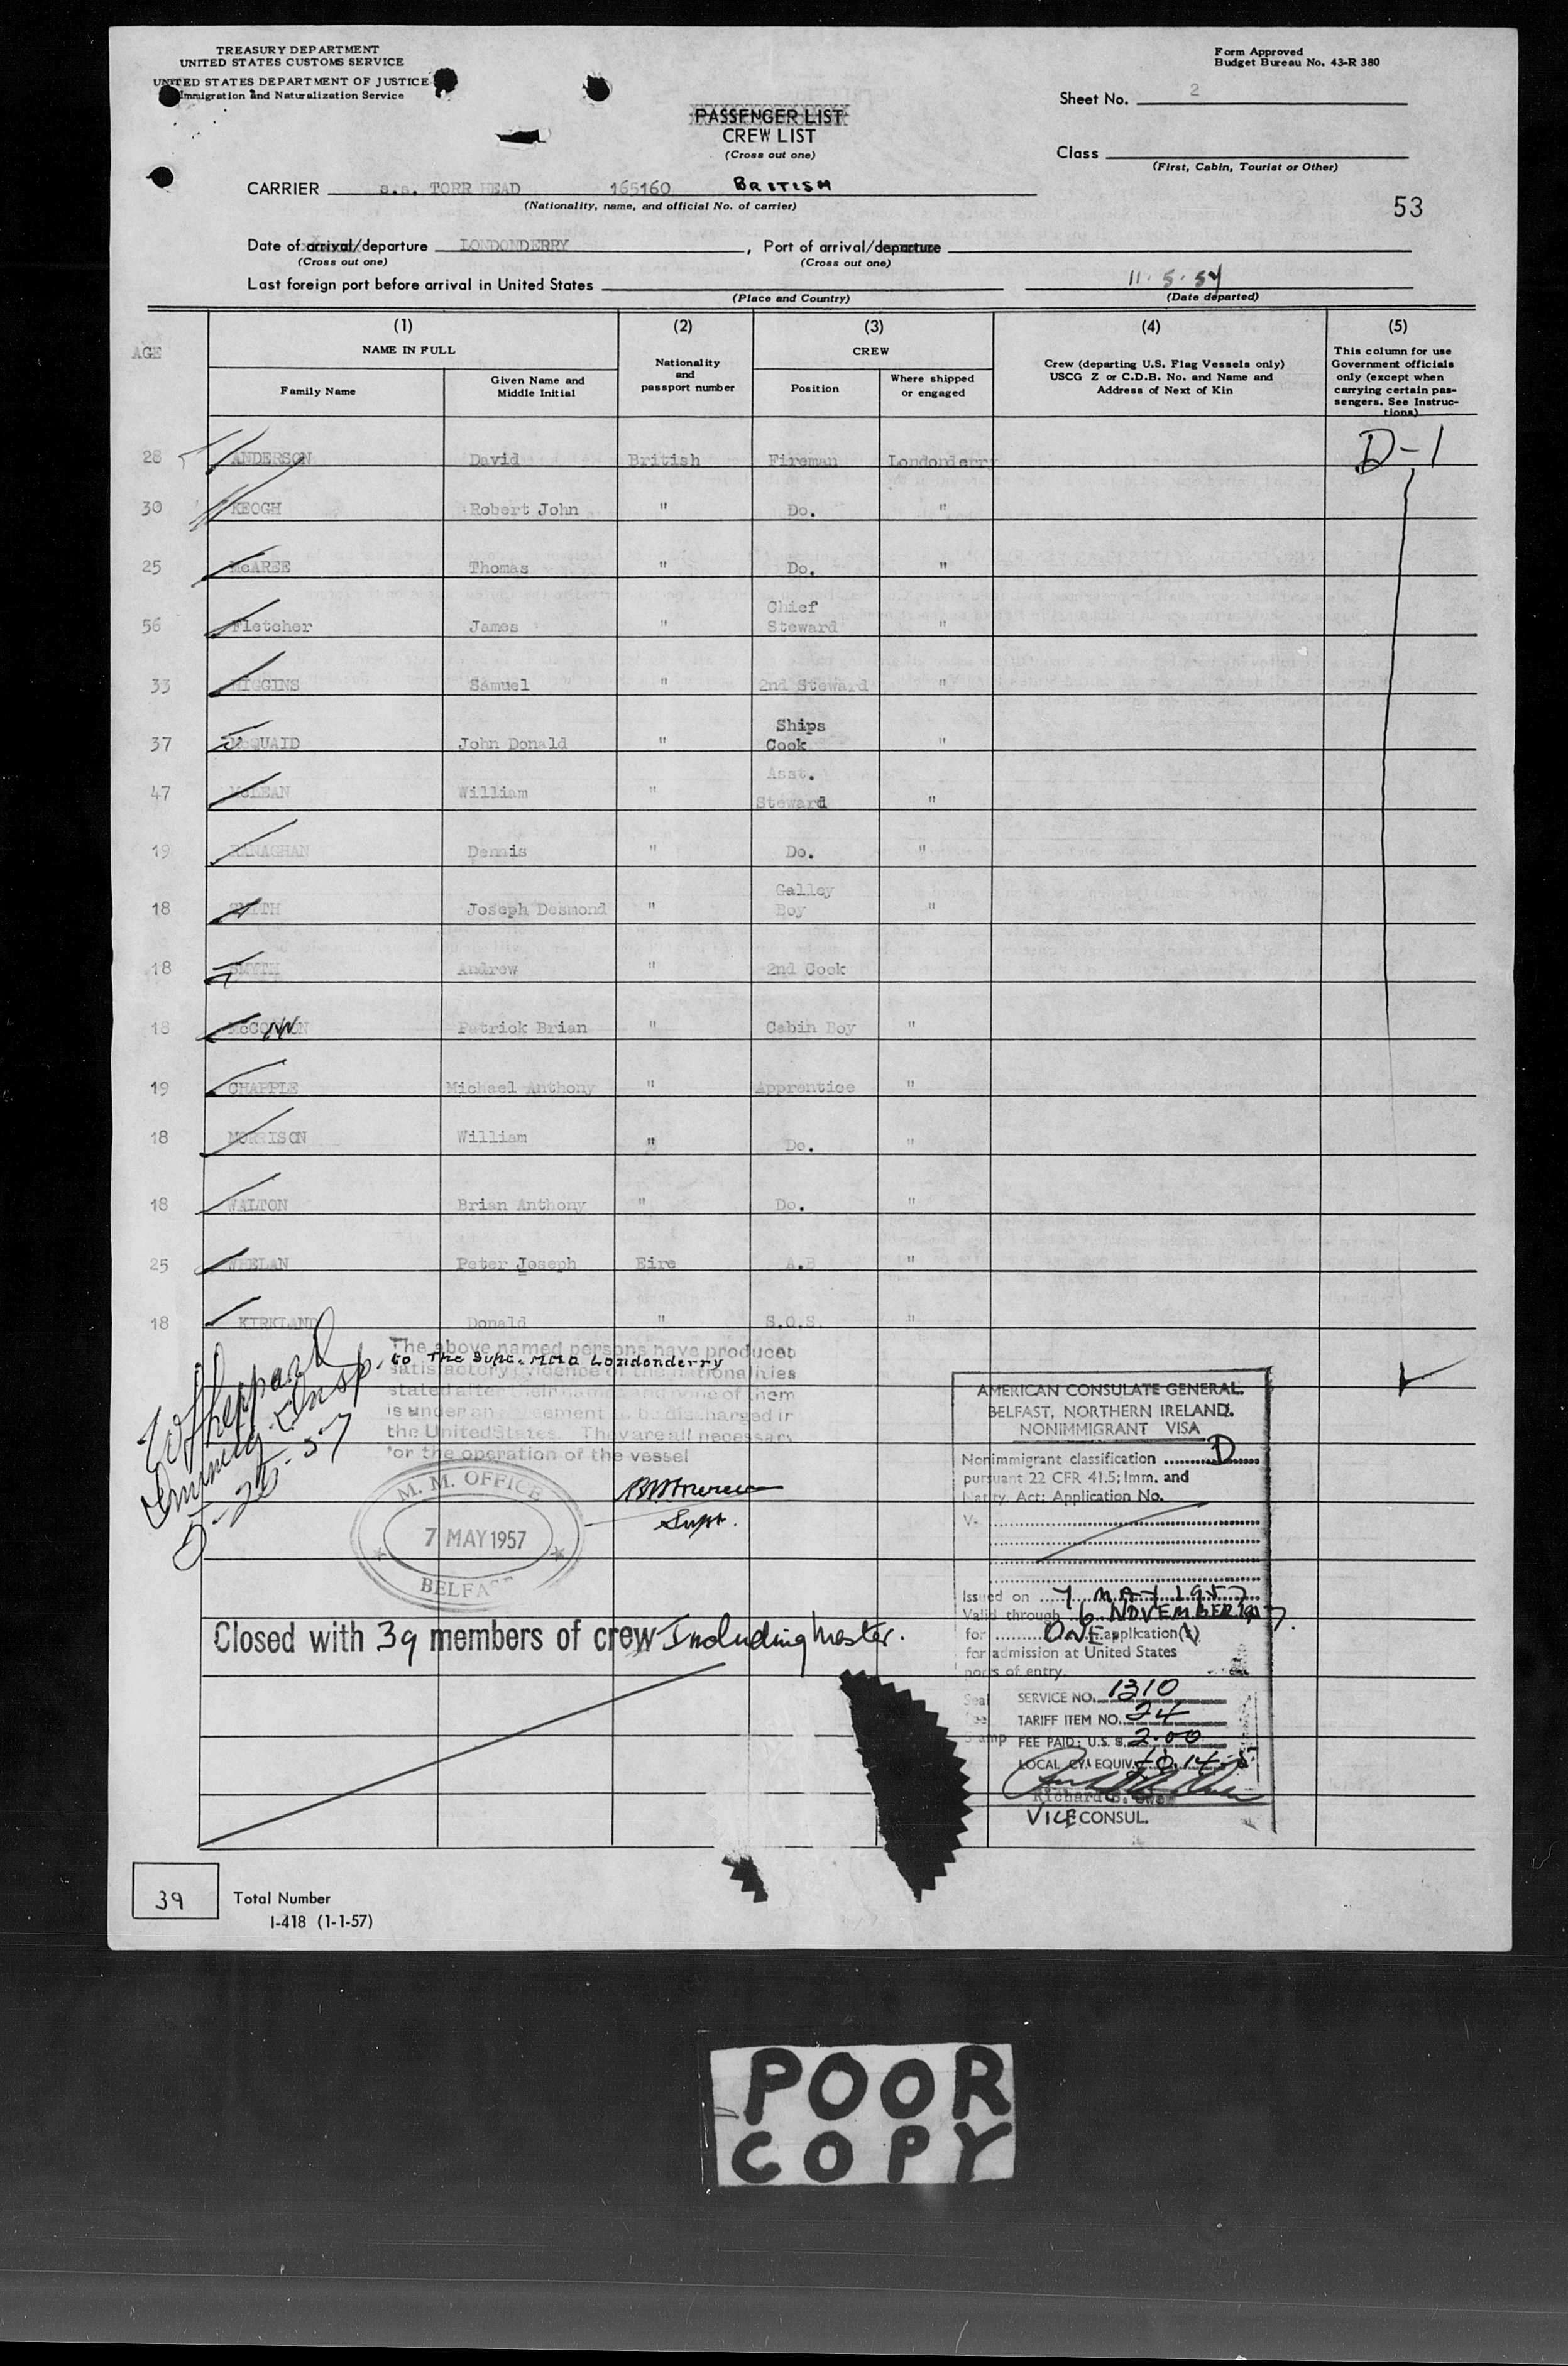 TREASURY DEPARTMENT
UNITED STATES CUSTOMS SERVICE
UNITED STATES DEPARTMENT OF JUSTICE
Immigration and Naturalization Service
Form Approved
Budget Bureau No. 43-R 380
Sheet No. 2
PASSENGER LIST
CREW LIST
(Cross out one)
Class
(First, Cabin, Tourist or Other)
CARRIER s.s. TORR HEAD 165160 BRITISH
(Nationality, name, and official No. of carrier)
53
Date of arrival/departure LONDONDERRY , Port of arrival/departure
(Cross out one) (Cross out one)
Last foreign port before arrival in United States 11.5.57
(Place and Country) (Date departed)
AGE
(1) (2) (3) (4) (5)
NAME IN FULL
Nationality and passport number
CREW
Crew (departing U.S. Flag Vessels only) USCG Z or C.D.B. No. and Name and Address of Next of Kin
This column for use Government officials only (except when carrying certain passengers. See Instructions)
Family Name Given Name and Middle Initial Position Where shipped or engaged
28 ANDERSON David British Fireman Londonderry D-1
30 KEOGH Robert John " Do. "
25 McAREE Thomas " Do. "
56 Fletcher James " Chief Steward "
33 HIGGINS Samuel " 2nd Steward "
37 McQUAID John Donald " Ships Cook "
47 McLEAN William " Asst. Steward "
19 RANAGHAN Dennis " Do. "
18 SMYTH Joseph Desmond " Galley Boy "
18 SMYTH Andrew " 2nd Cook
18 Patrick Brian " Cabin Boy "
19 CHAPPLE Michael Anthony " Apprentice "
18 MORRISON William " Do. "
18 WALTON Brian Anthony " Do. "
25 WHELAN Peter Joseph Eire A.B "
18 KIRKLAND Donald " S.O.S. "
The above named persons have produced
to The Supt. MMO Londonderry
satisfactory evidence of the nationalities
stated after their names and none of them
is under an agreement to be discharged in
the United States. They are all necessary
for the operation of the vessel
Immig. Insp.
5-20-57
M. M. OFFICE
7 MAY 1957
BELFAST
Supt.
AMERICAN CONSULATE GENERAL.
BELFAST, NORTHERN IRELAND.
NONIMMIGRANT VISA
Nonimmigrant classification D
pursuant 22 CFR 41.5; Imm. and
Natty. Act; Application No.
V-
Issued on 7 MAY 1957
Valid through 6 NOVEMBER 1957.
for ONE application(s)
for admission at United States
ports of entry.
Closed with 39 members of crew Including Master.
Seal
Fee
Stamp
SERVICE NO. 1310
TARIFF ITEM NO. 24
FEE PAID: U.S. $ 2.00
LOCAL CY. EQUIV. £0.14.5
VICE CONSUL.
39 Total Number
I-418 (1-1-57)
POOR
COPY